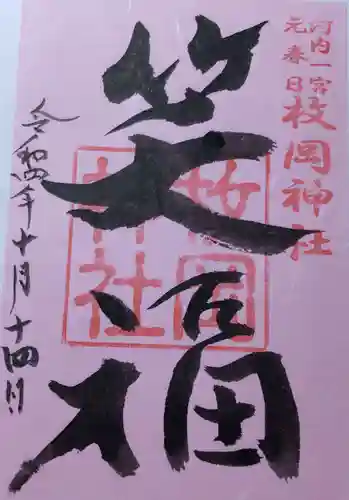 河内一宮
元春日
枚岡神社
笑福
枚岡神社
令和四年十月十四日